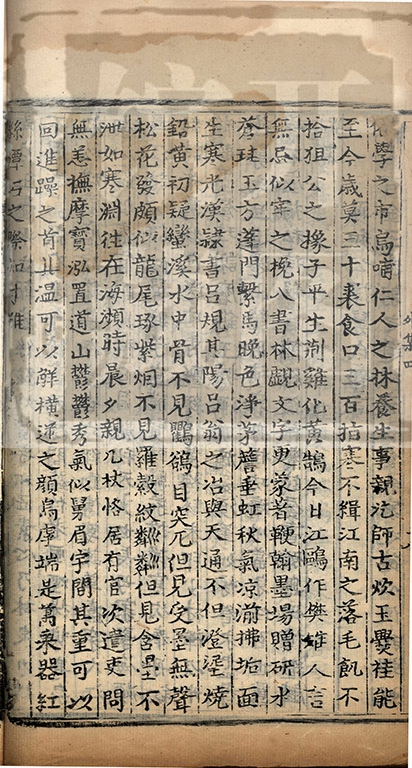 學之市烏哺仁人之林養生事親汔師古炊玉爨桂能
至今歲莫三十裘食口三百指寒不緝江南之落毛飢不
拾狙公之橡子平生荆雞化黃鵠今日江鷗作樊雉人言
無忌似牢之挽入書林觀文字更蒙著鞭翰墨場贈研水
蒼珪玉方蓬門繫馬晚色淨茅簷垂虹秋氣凉湔拂垢面
生寒光漢隸書呂規其陽呂翁之冶與天通不但澄埿燒
鉛黃初疑蠻溪水中骨不見鸜鵒目突兀但見受墨無聲
松花發頗似龍尾琢紫烟不見羅縠紋粼粼但見含墨不
泄如寒淵往在海瀕時晨夕親几杖恪居有官次遣吏問
無恙撫摩寶泓置道山鬱鬱秀氣似舅眉宇間其重可以
回進躁之首其温可以解橫逆之顔烏虖端是萬乘器紅
絲潭石之際知才難